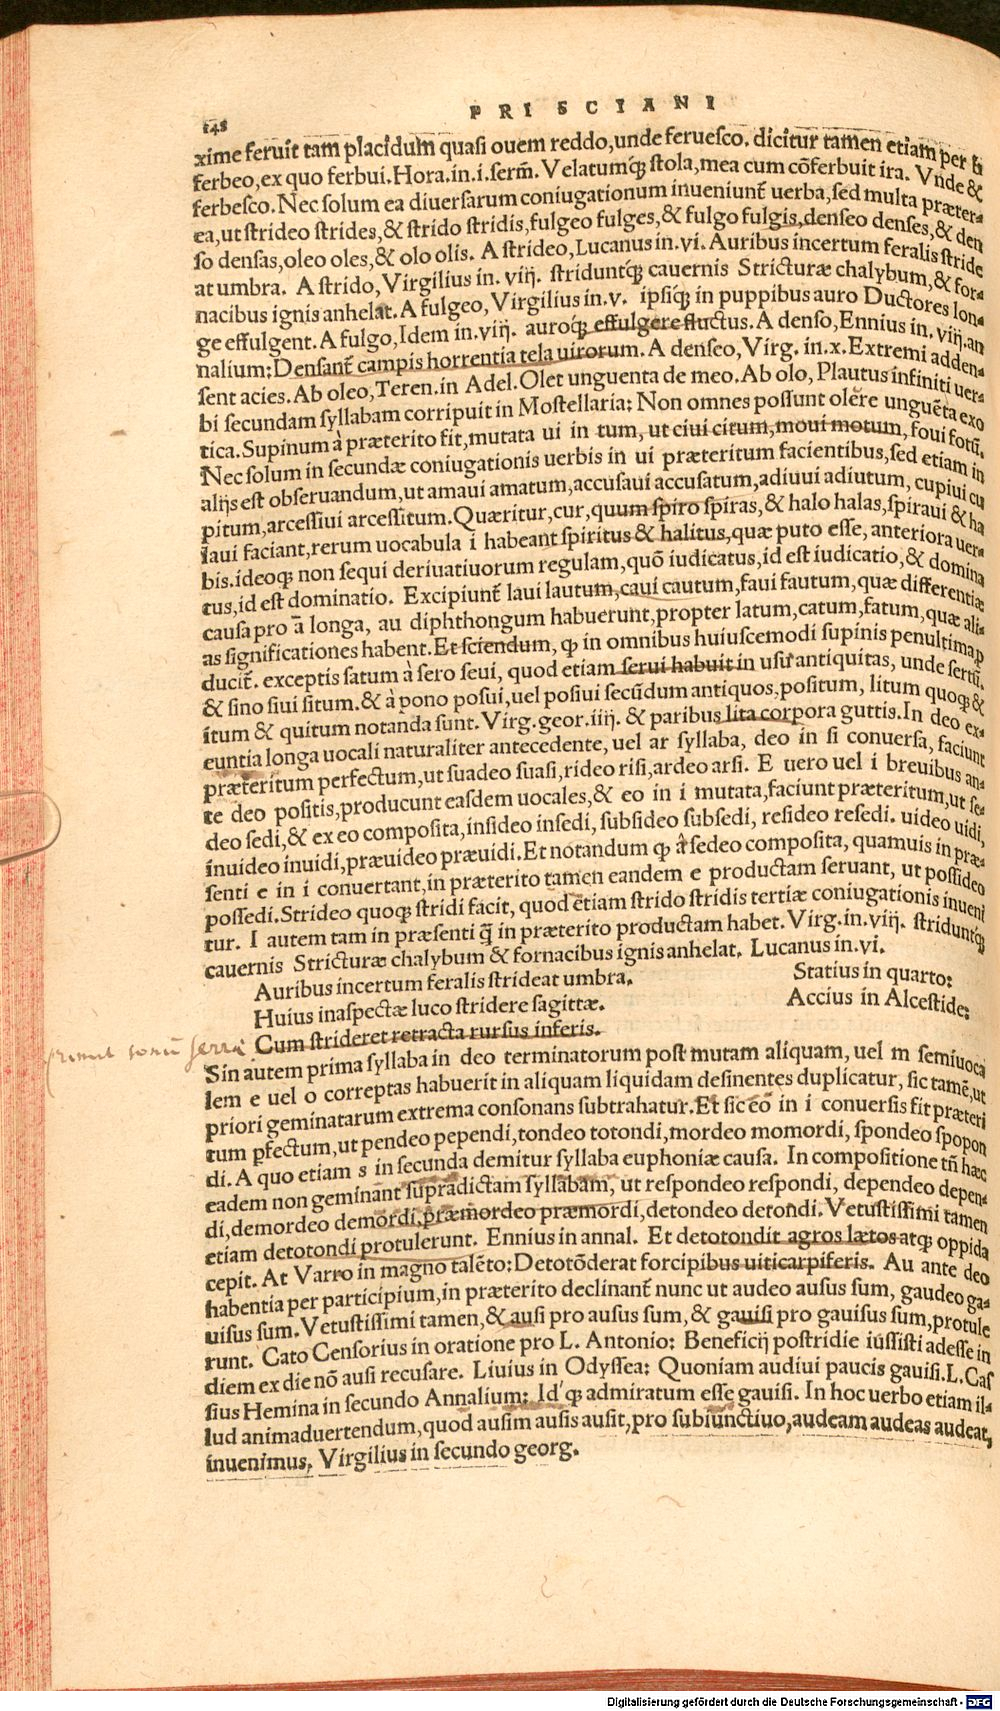 148
PRISCIANI
xime feruit tam placidum quasi ouem reddo,unde feruesco. dicitur tamen etiam per b
ferbeo,ex quo ferbui.Hora.in.i.serm̄. Velatumq; stola,mea cum cōferbuit ira. Vnde &
ferbesco.Nec solum ea diuersarum coniugationum inueniunt̄ uerba,sed multa præter-
ea,ut strideo strides,& strido stridis,fulgeo fulges,& fulgo fulgis,denseo denses,& den
so densas,oleo oles,& olo olis. A strideo,Lucanus in.vi. Auribus incertum feralis stride
at umbra. A strido,Virgilius in. viij. striduntq; cauernis Stricturæ chalybum,& for-
nacibus ignis anhelat.A fulgeo, Virgilius in.v. ipsiq; in puppibus auro Ductores lon-
ge effulgent.A fulgo,Idem in.viij. auroq; effulgere fluctus.A denso,Ennius in.viij.an
nalium:Densant̄ campis horrentia tela uirorum.A denseo,Virg. in.x.Extremi adden-
sent acies.Ab oleo,Teren.in Adel.Olet unguenta de meo.Ab olo,Plautus infiniti uer-
bi secundam syllabam corripuit in Mostellaria: Non omnes possunt olĕre unguēta exo
tica.Supinum à præterito fit,mutata ui in tum, ut ciui citum,moui motum, foui fotū.
Nec solum in secundæ coniugationis uerbis in ui præteritum facientibus,sed etiam in
alijs est obseruandum,ut amaui amatum,accusaui accusatum,adiuui adiutum, cupiui cu
pitum,arcessiui arcessitum.Quæritur,cur,quum spiro spiras,& halo halas,spiraui & ha
laui faciant,rerum uocabula i habeant spiritus & halitus,quæ puto esse, anteriora uer-
bis.ideoq; non sequi deriuatiuorum regulam,quō iudicatus,id est iudicatio,& domina
tus,id est dominatio. Excipiunt̄ laui lautum,caui cautum,faui fautum,quæ differentiæ
causa pro ā longa, au diphthongum habuerunt,propter latum,catum,fatum,quæ ali-
as significationes habent.Et sciendum, ꝙ in omnibus huiuscemodi supinis penultima ꝓ
ducit̄. exceptis satum à sero seui, quod etiam serui habuit in usu antiquitas, unde sertū.
& sino siui situm.& à pono posui,uel posiui secūdum antiquos,positum, litum quoq; &
itum & quitum notanda sunt. Virg.geor.iiij. & paribus lita corpora guttis.In deo ex-
euntia longa uocali naturaliter antecedente, uel ar syllaba, deo in si conuersa, faciunt
præteritum perfectum,ut suadeo suasi,rideo risi,ardeo arsi. E uero uel i breuibus an-
te deo positis,producunt easdem uocales,& eo in i mutata,faciunt præteritum,ut se-
deo sedi,& ex eo composita,insideo insedi, subsideo subsedi, resideo resedi. uideo uidi,
inuideo inuidi,præuideo præuidi.Et notandum ꝙ à sedeo composita, quamuis in præ-
senti e in i conuertant,in præterito tamen eandem e productam seruant, ut possideo
possedi.Strideo quoq; stridi facit, quod etiam strido stridis tertiæ coniugationis inueni
tur. I autem tam in præsenti q̄ in præterito productam habet. Virg.in.viij. striduntq;
cauernis Stricturæ chalybum & fornacibus ignis anhelat. Lucanus in.vi.
Auribus incertum feralis strideat umbra. Statius in quarto:
Huius inaspectæ luco stridere sagittæ. Accius in Alcestide:
Cum strideret retracta rursus inferis.
Sin autem prima syllaba in deo terminatorum post mutam aliquam, uel m semiuoca
lem e uel o correptas habuerit in aliquam liquidam desinentes duplicatur, sic tamē,ut
priori geminatarum extrema consonans subtrahatur.Et sic eo in i conuersis fit præteri
tum ꝑfectum,ut pendeo pependi,tondeo totondi,mordeo momordi, spondeo spopon
di. A quo etiam s in secunda demitur syllaba euphoniæ causa. In compositione tn̄ hæc
eadem non geminant supradictam syllabam, ut respondeo respondi, dependeo depen-
di,demordeo demordi,præmordeo præmordi,detondeo detondi. Vetustissimi tamen
etiam detotondi protulerunt. Ennius in annal. Et detotondit agros lætos atq; oppida
cepit. At Varro in magno talēto:Detotōderat forcipibus uiticarpiferis. Au ante deo
habentia per participium,in præterito declinant̄ nunc ut audeo ausus sum, gaudeo ga-
uisus sum.Vetustissimi tamen,& ausi pro ausus sum, & gauisi pro gauisus sum,protule
runt. Cato Censorius in oratione pro L. Antonio: Beneficij postridie iussisti adesse in
diem ex die nō ausi recusare. Liuius in Odyssea: Quoniam audiui paucis gauisi.L.Cas
sius Hemina in secundo Annalium: Id'q; admiratum esse gauisi. In hoc uerbo etiam il-
lud animaduertendum,quod ausim ausis ausit,pro subiunctiuo,audeam audeas audeat,
inuenimus. Virgilius in secundo georg.
Digitalisierung gefördert durch die Deutsche Forschungsgemeinschaft - DFG